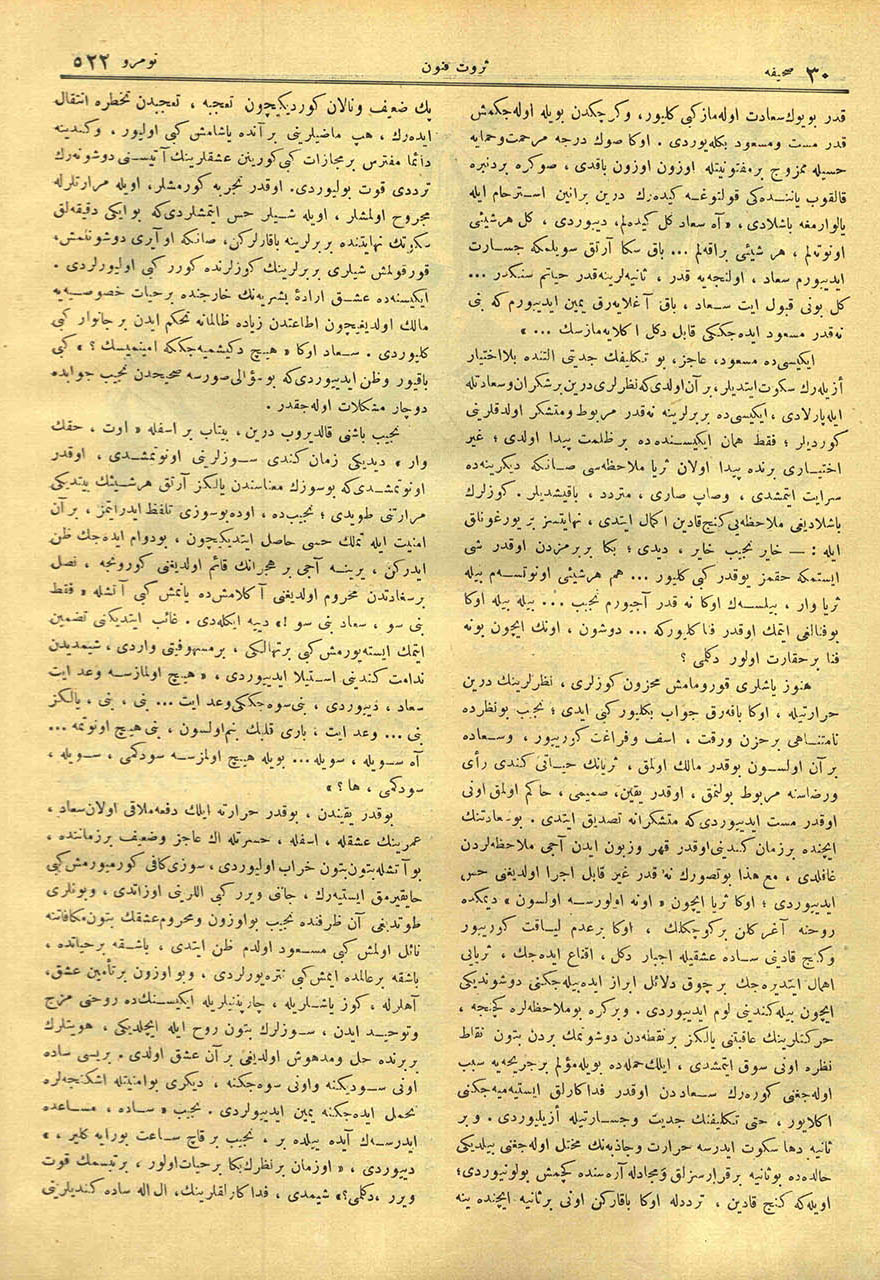 ٣٠ صحيفه
ثروت فنون
نومرو ٥٢٢
قدر بويوك سعادت اوله‌ماز كبی كليور، وكرچكدن بويله اوله‌جكمش
قدر مست ومسعود بكله‌يوردی . اوكا صوك درجه مرحمت وحمايه
حسيله ممزوج برمفتونيتله اوزون اوزون باقدی ، صوكره بردنبره
قالقوب ياننده‌كی قولتوغه كيده‌رك درين برانين استرحام ايله
يالوارمغه باشلادی ، «آه سعاد كل كيده‌لم، ديیوردی ، كل هرشيئی
اونوته‌لم ، هر شيئی براقه‌لم ... باق سكا آرتق سويلمكه جسارت
ايديیورم سعاد ، اولنجه‌يه قدر ، ثانيه‌لرينه‌قدر حياتم سنكدر ...
كل بونی قبول ايت سعاد ، باق آغلايه‌رق يمين ايديیورم كه بنی
نه‌قدر مسعود ايده‌جككی قابل دكل اكلايه‌مازسك ... »
ايكيسی‌ده مسعود، عاجز، بو تكليفك جديتی التنده بلااختيار
أزيله‌رك سكوت ايتديلر، بر آن اولدی‌كه نظرلری درين برشكران وسعادتله
ايله پارلادی ، ايكيسی‌ده بربرلرينه نه‌قدر مربوط ومتشكر اولدقلرينی
كورديلر ؛ فقط همان ايكيسنده‌ده بر ظلمت پيدا اولدی ؛ غير
اختياری برنده پيدا اولان ثريا ملاحظه‌سی صانكه ديكرينه‌ده
سرايت ايتمشدی ، وصاپ صاری ، متردد ، باقيشديلر . كوزلرك
باشلاديغی ملاحظه‌يی كنج قادين اكمال ايتدی ، نهايتسز بر يورغونلق
ايله : — خاير نجيب خاير ، ديدی ؛ بكا بر برمزدن اوقدر شی
ايستمكه حقمز يوقدر كبی كليور ... هم هرشيئی اونوتسه‌م بيله
ثريا وار ، بيلسه‌ك اوكا نه قدر آجيورم نجيب ... بيله بيله اوكا
بوفنالغی ايتمك اوقدر فنا كليوركه ... دوشون ، اونك ايچون بونه
فنا برحقارت اولور دكلمی ؟
هنوز ياشلری قورومامش محزون كوزلری ، نظرلرينك درين
حرارتيله ، اوكا باقه‌رق جواب بكليور كبی ايدی ؛ نجيب بونظرده
نامتناهی برحزن ورقت ، اسف وفراغت كوريیور ، وسعاده
بر آن اولسون بوقدر مالك اولمق ، ثريانك حياتی كندی رأی
ورضاسنه مربوط بولنمق ، اوقدر يقين، صميمی ، حاكم اولمق اونی
اوقدر مست ايديیوردی‌كه متشكرانه تصديق ايتدی . بوسعادتنك
ايچنده برزمان كندينی اوقدر قهر وزبون ايدن آجی ملاحظه‌لردن
غافلدی ، مع هذا بوتصورك نه قدر غير قابل اجرا اولديغنی حس
ايديیوردی ؛ اوكا ثريا ايچون « اونه اولورسه اولسون » ديمكده
روحنه آغر كلن بركوچكلك ، اوكا برعدم لياقت كوريیور
وكنج قادينی ساده عشقيله اجبار دكل ، اقناع ايده‌جك ، ثريايی
اهمال ايتديره‌جك بر چوق دلائل ابراز ايده‌بيله‌جكنی دوشونديكی
ايچون بيله كندينی لوم ايديیوردی . وبركره بوملاحظه‌لره كچنجه ،
حركتلرينك عاقبتنی يالكز بر نقطه‌دن دوشونمك بردن بتون نقاط
نظره اونی سوق ايتمشدی ، ايلك حمله‌ده بويله مؤلم برجريحه‌يه سبب
اوله‌جغنی كوره‌رك سعاددن اوقدر فداكارلق ايستيه‌ميه‌جكنی
اكلايور ، حتی تكليفنك جديت وجسارتيله أزيليوردی . وبر
ثانيه دها سكوت ايدرسه حرارت وجاذبه‌نك مختل اوله‌جغنی بيلديكی
حالده‌ده بوثانيه بر قرارسزلق ومجادله آره‌سنده كچمش بولونيوردی؛
اويله‌كه كنج قادين ، تردد‌له اوكا باقاركن اونی برثانيه ايچنده ينه
پك ضعيف ونالان كورديكيچون تعجبه ، تعجبدن تخطره انتقال
ايده‌رك ، هپ ماضيلرينی بر آنده ياشامش كبی اوليور ، وكندينه
دائما مفترس برمجازات كبی كورينن عشقلرينك آتيسنی دوشونه‌رك
ترددی قوت بوليوردی. اوقدر تجربه كورمشلر، اويله مرارتلرله
مجروح اولمشلر ، اويله شيلر حس ايتمشلردی‌كه بو ايكی دقيقه‌لق
سكوتك نهايتنده بربرلرينه باقارلركن، صانكه اوآيری دوشونلمش،
قورقولمش شيلری بربرلرينك كوزلرنده كورر كبی اوليورلردی .
ايكيسنه‌ده عشق ارادۀ بشريه‌نك خارجنده برحيات خصوصيه‌يه
مالك اولديغيچون اطاعتدن زياده ظالمانه تحكم ايدن بر جانوار كبی
كليوردی . سعاد اوكا « هيچ دكيشميه‌جككه امينميسك ؟ » كبی
باقيور وظن ايديیوردی‌كه بوسؤالی صورسه صحيحدن نجيب جوابده
دوچار مشكلات اوله‌جقدر .
نجيب باشنی قالديروب درين ، بيتاب بر اسفله « اوت ، حقك
وار » ديديكی زمان كندی سوزلرينی اونوتمشدی ، اوقدر
اونوتمشدی‌كه بوسوزك معناسندن يالكز آرتق هرشيئك بيتديكی
مرارتنی طويدی ؛ نجيب‌ده ، اوده بوسوزی تلفظ ايدر‌ايتمز ، بر آن
امنيت ايله تملك حسی حاصل ايتديكيچون ، بودوام ايده‌جك ظن
ايدركن ، يرينه آجی بر هجرانك قائم اولديغنی كورونجه ، نصل
برسعادتدن محروم اولديغنی آكلامش‌ده يانمش كبی آتشله « فقط
بنی سو ، سعاد بنی سو !» دييه ايكله‌دی . غائب ايتديكنی تضمين
ايتمك ايسته‌يورمش كبی برتهالكی ، برمسهوفيتی واردی ، شيمديدن
ندامت كندينی استيلا ايديیوردی ، « هيچ اولمازسه وعد ايت
سعاد ، ديیوردی ، بنی سوه‌جككی وعد ايت ... بنی ، بنی ، يالكز
بنی ... وعد ايت ، باری قلبك بنم اولسون ، بنی هيچ اونوتمه ...
آه سويله ، سويله ... بويله هيچ اولمازسه سودكمی ، سويله ،
سودكمی ، ها ؟ »
بوقدر يقيندن ، بوقدر حرارته ايلك دفعه ملاقی اولان سعاد ،
عمرينك عشقله ، اسفله ، حسرتله اك عاجز وضعيف برزماننده ،
بوآتشله بتون بتون خراب اوليوردی ، سوزی كافی كورميورمش كبی
حايقيرمق ايستيه‌رك ، جانی ويرر كبی اللرينی اوزاتدی ، وبونلری
طوتديغی آن ظرفنده نجيب بواوزون ومحروم عشقك بتون مكافاتنه
نائل اولمش كبی مسعود اولدم ظن ايتدی ، باشقه برحياتده ،
باشقه برعالمده ايمش كبی تتره‌يورلردی ، وبو اوزون برتأمين عشق،
آهلرله ، كوز ياشلريله ، چارپنتيلريله ايكيسنك‌ده روحنی مزج
وتوحيد ايدن ، سوزلرك بتون روح ايله ايچلديكی ، هويتلرك
بربرنده حل ومدهوش اولديغی بر آن عشق اولدی . بريسی ساده
اونی سوديكنه واونی سوه‌جكنه ، ديكری بوامنيتله اشكنجه‌لره
تحمل ايده‌جكنه يمين ايديیورلردی . نجيب « ساده ، مساعده
ايدرسه‌ك آيده ييلده بر ، نجيب بر قاچ ساعت بورايه كلير ، »
ديیوردی ، « اوزمان برنظرك بكا برحيات اولور ، برتبسمك قوت
ويرر ، دكلمی؟» شيمدی ، فداكارلقلرينك، ال اله ساده كنديلرينی